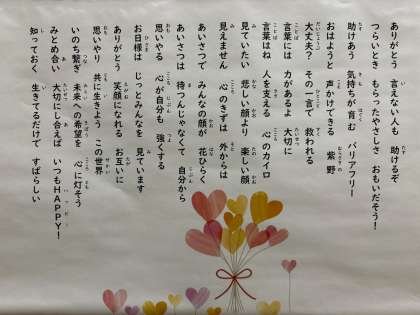 ありがとう 言えない人も 助けるぞ
つらいとき もらったやさしさ おもいだそう！
助けあう 気持ちが育む バリアフリー
おはようと 声かけできる 紫野
大丈夫？ その一言で 救われる
言葉には 力があるよ 大切に
言葉はね 人を支える 心のカイロ
見ていたい 悲しい顔より 楽しい顔
見えません 心のきずは 外からは
あいさつで みんなの顔が 花ひらく
あいさつは 待つんじゃなくて 自分から
思いやる 心が自分も 強くする
お日様は じっとみんなを 見ています
ありがとう 笑顔になれる お互いに
思いやり 共に生きよう この世界
いのち繋ぎ 未来への希望を 心に灯そう
みとめ合い 大切にし合えば いつもＨＡＰＰＹ！
知っておく 生きてるだけで すばらしい